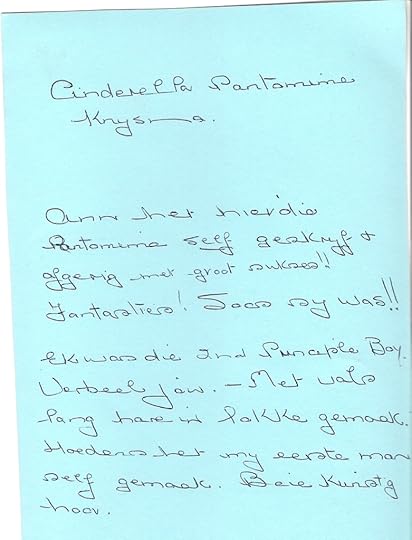 Cinderella Pantomime
Knysna.
Ann het hierdie
Pantomime self geskryf &
afgerig met groot sukses!!
Fantasties! Soos sy was!!
Ek was die 2nd Principle Boy.
Verbeel jou. – Met vals
lang hare in lokke gemaak.
Hoedens het my eerste man
self gemaak. Baie Kunstig
hoor.